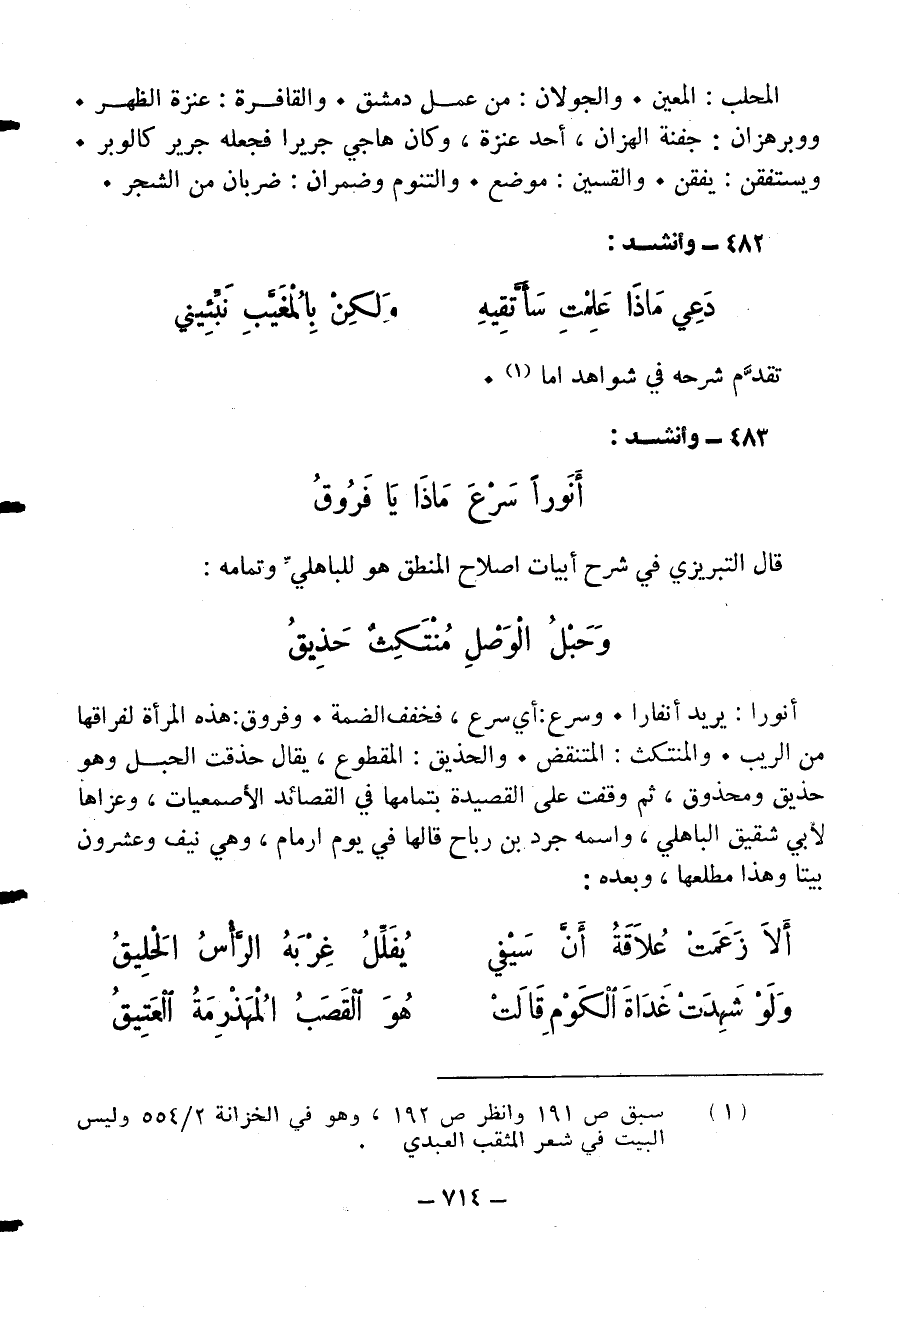 المحلب : المعين ٠ والجولان : من عمــل دمشق ٠ والقافــرة : عنزة الظهــر ٠
ووبرهزان : جفنة الهزان ، أحد عنزة ، وكان هاجي جريرا فجعله جرير كالوبر ٠
ويستفقن : يفقن ٠ والقسين : موضع ٠ والتنوم وضمران : ضربان من الشجر ٠
٤٨٢ ــ وأنشــد :
دَعِي مَاذَا عَلِمْتِ سَأَتَّقِيهِ وَلَكِنْ بِالْمُغَيَّبِ نَبِّئِيني
تقدَّم شرحه في شواهد اما (١) ٠
٤٨٣ ــ وأنشــد :
أَنَوراً سَرْعَ مَاذَا يَا فَرُوقُ
قال التبريزي في شرح أبيات اصلاح المنطق هو للباهليّ وتمامه :
وَحَبْلُ الْوَصْلِ مُنْتَكِثٌ حَذِيقُ
أنورا : يريد أنفارا ٠ وسرع:أي سرع ، فخفف الضمة ٠ وفروق:هذه المرأة لفراقها
من الريب ٠ والمنتكث : المتنقض ٠ والحذيق : المقطوع ، يقال حذقت الحبــل وهو
حذيق ومحذوق ، ثم وقفت على القصيدة بتمامها في القصائد الأصمعيات ، وعزاها
لأبي شقيق الباهلي ، واسمه جرد بن رباح قالها في يوم ارمام ، وهي نيف وعشرون
بيتا وهذا مطلعها ، وبعده :
أَلاَ زَعَمَتْ عُلاَقَةُ أَنَّ سَيْفِي يُفَلِّلُ غِرْبَهُ الرَّأْسُ الحَلِيقُ
وَلَوْ شَهِدَتْ غَدَاةَ ٱلكَوْمِ قَالَتْ هُوَ ٱلقَصَبُ المُهَذْرِمَةُ ٱلعَتِيقُ
(١) سبق ص ١٩١ وانظر ص ١٩٢ ، وهو في الخزانة ٥٥٤/٢ وليس
البيت في شعر المثقب العبدي .
ــ ٧١٤ ــ